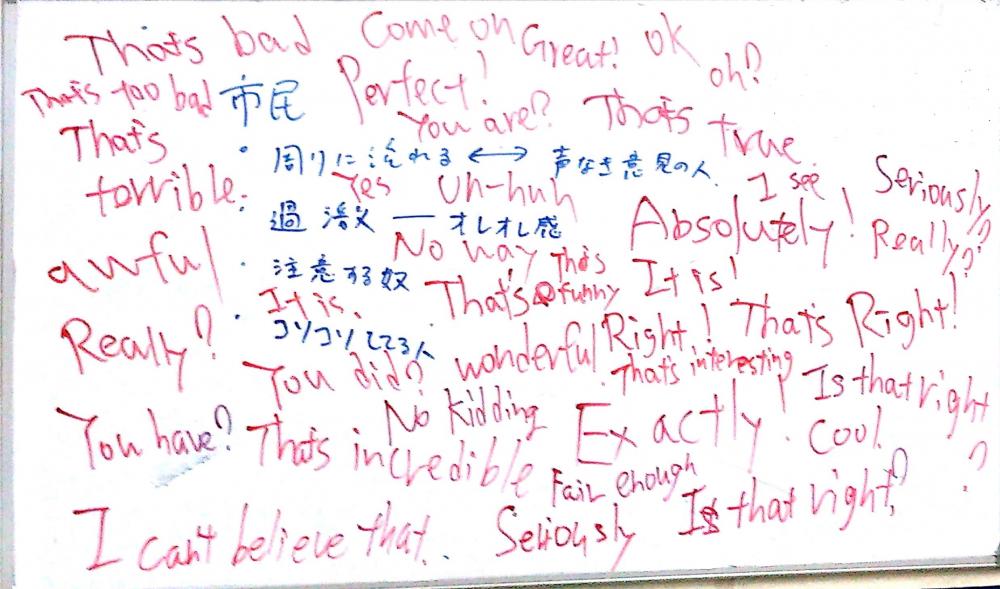 That's bad Come on Great! OK oh?
That's too bad 市民 Perfect!
That's You are? That's true.
・周りに流れる ⟷ 声なき意見の人.
terrible. Yes Uh-huh I see Seriously?
・過激 — オレオレ感
Absolutely! Really?
awful No way That's
・注意する奴 That's funny It is!
It is.
・コソコソしてる人
Really? You did? wonderful Right! That's Right!
That's interesting
You have? No kidding Exactly! Is that right?
That's incredible Cool.
Fair enough
I can't believe that. Seriously Is that right?